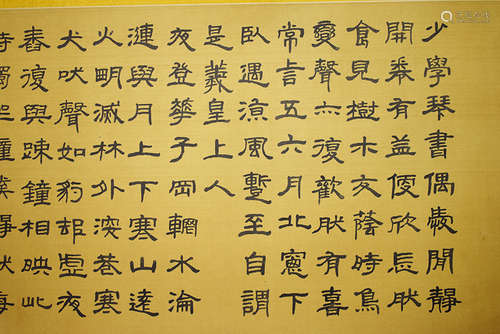 少學琴書偶愛閒靜
開卷有益便欣忘肰
食見樹木交蔭時鳥
變聲亦復歡肰有喜
常言五六月北窗下
臥遇涼風暫至自謂
是羲皇上人
夜登華子岡輞水淪
漣與月上下寒山遠
火明滅林外深巷寒
犬吠聲如豹邨虛夜
舂復與疎鐘相映此